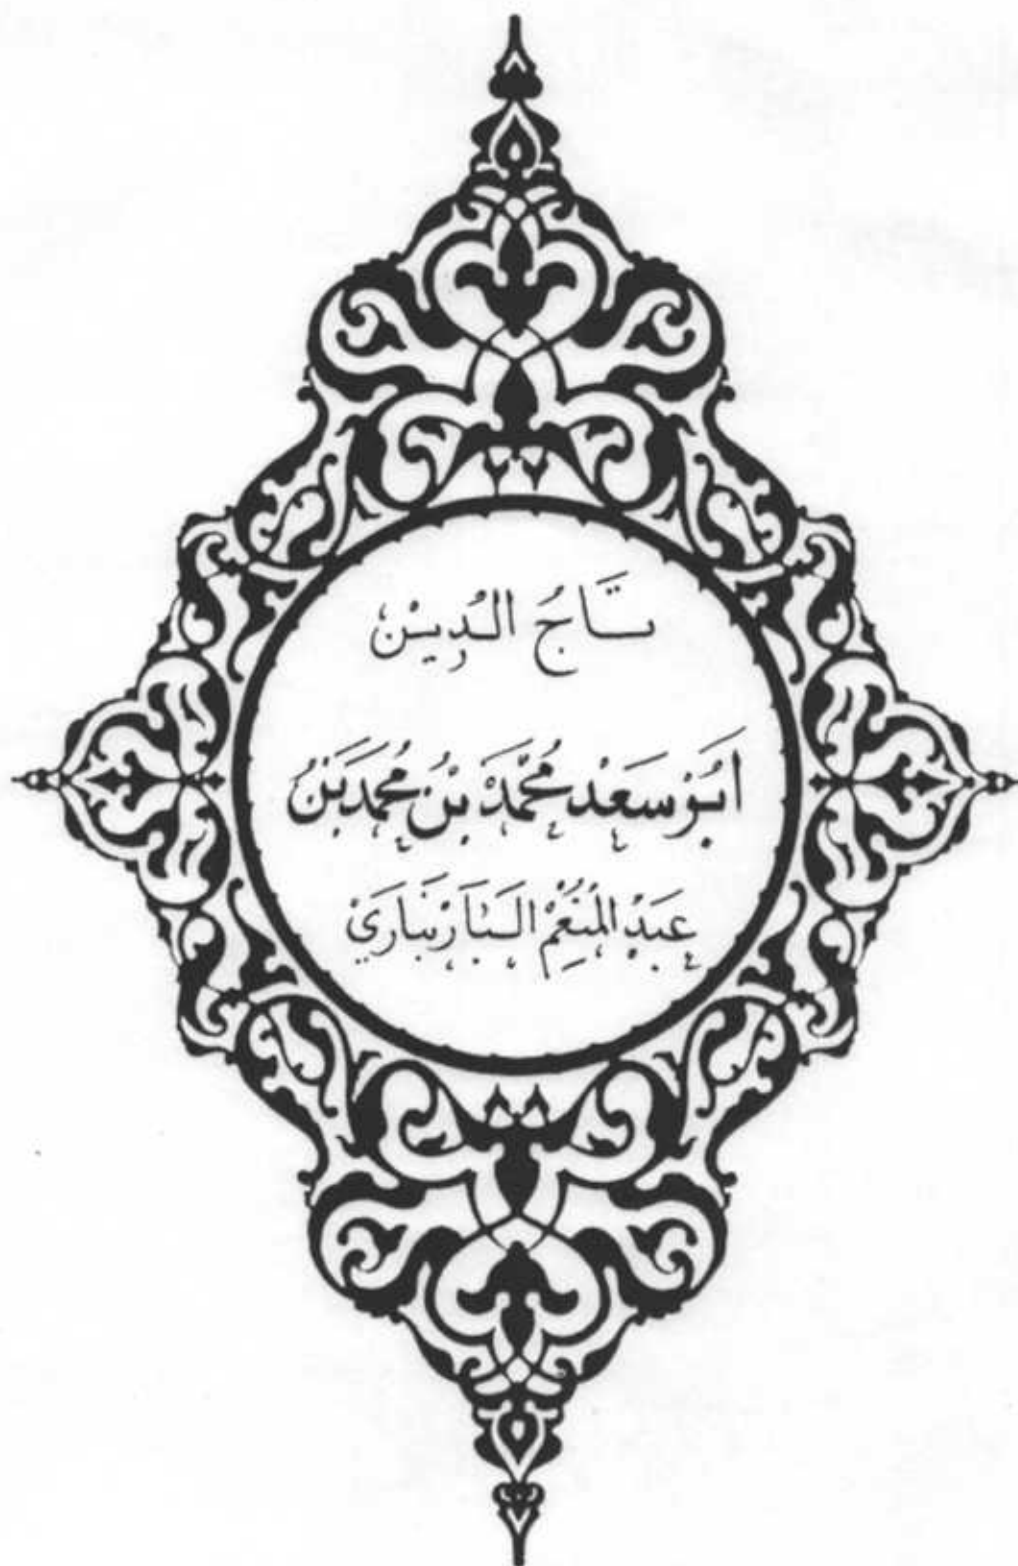 تَاجُ الدِّيْن
أَبُوْ سَعَدْ مُحَمَّدْ بْنُ مُحَمَدْ بَنْ
عَبَدْ المُنَعْمِ البَارَنبَارَيْ